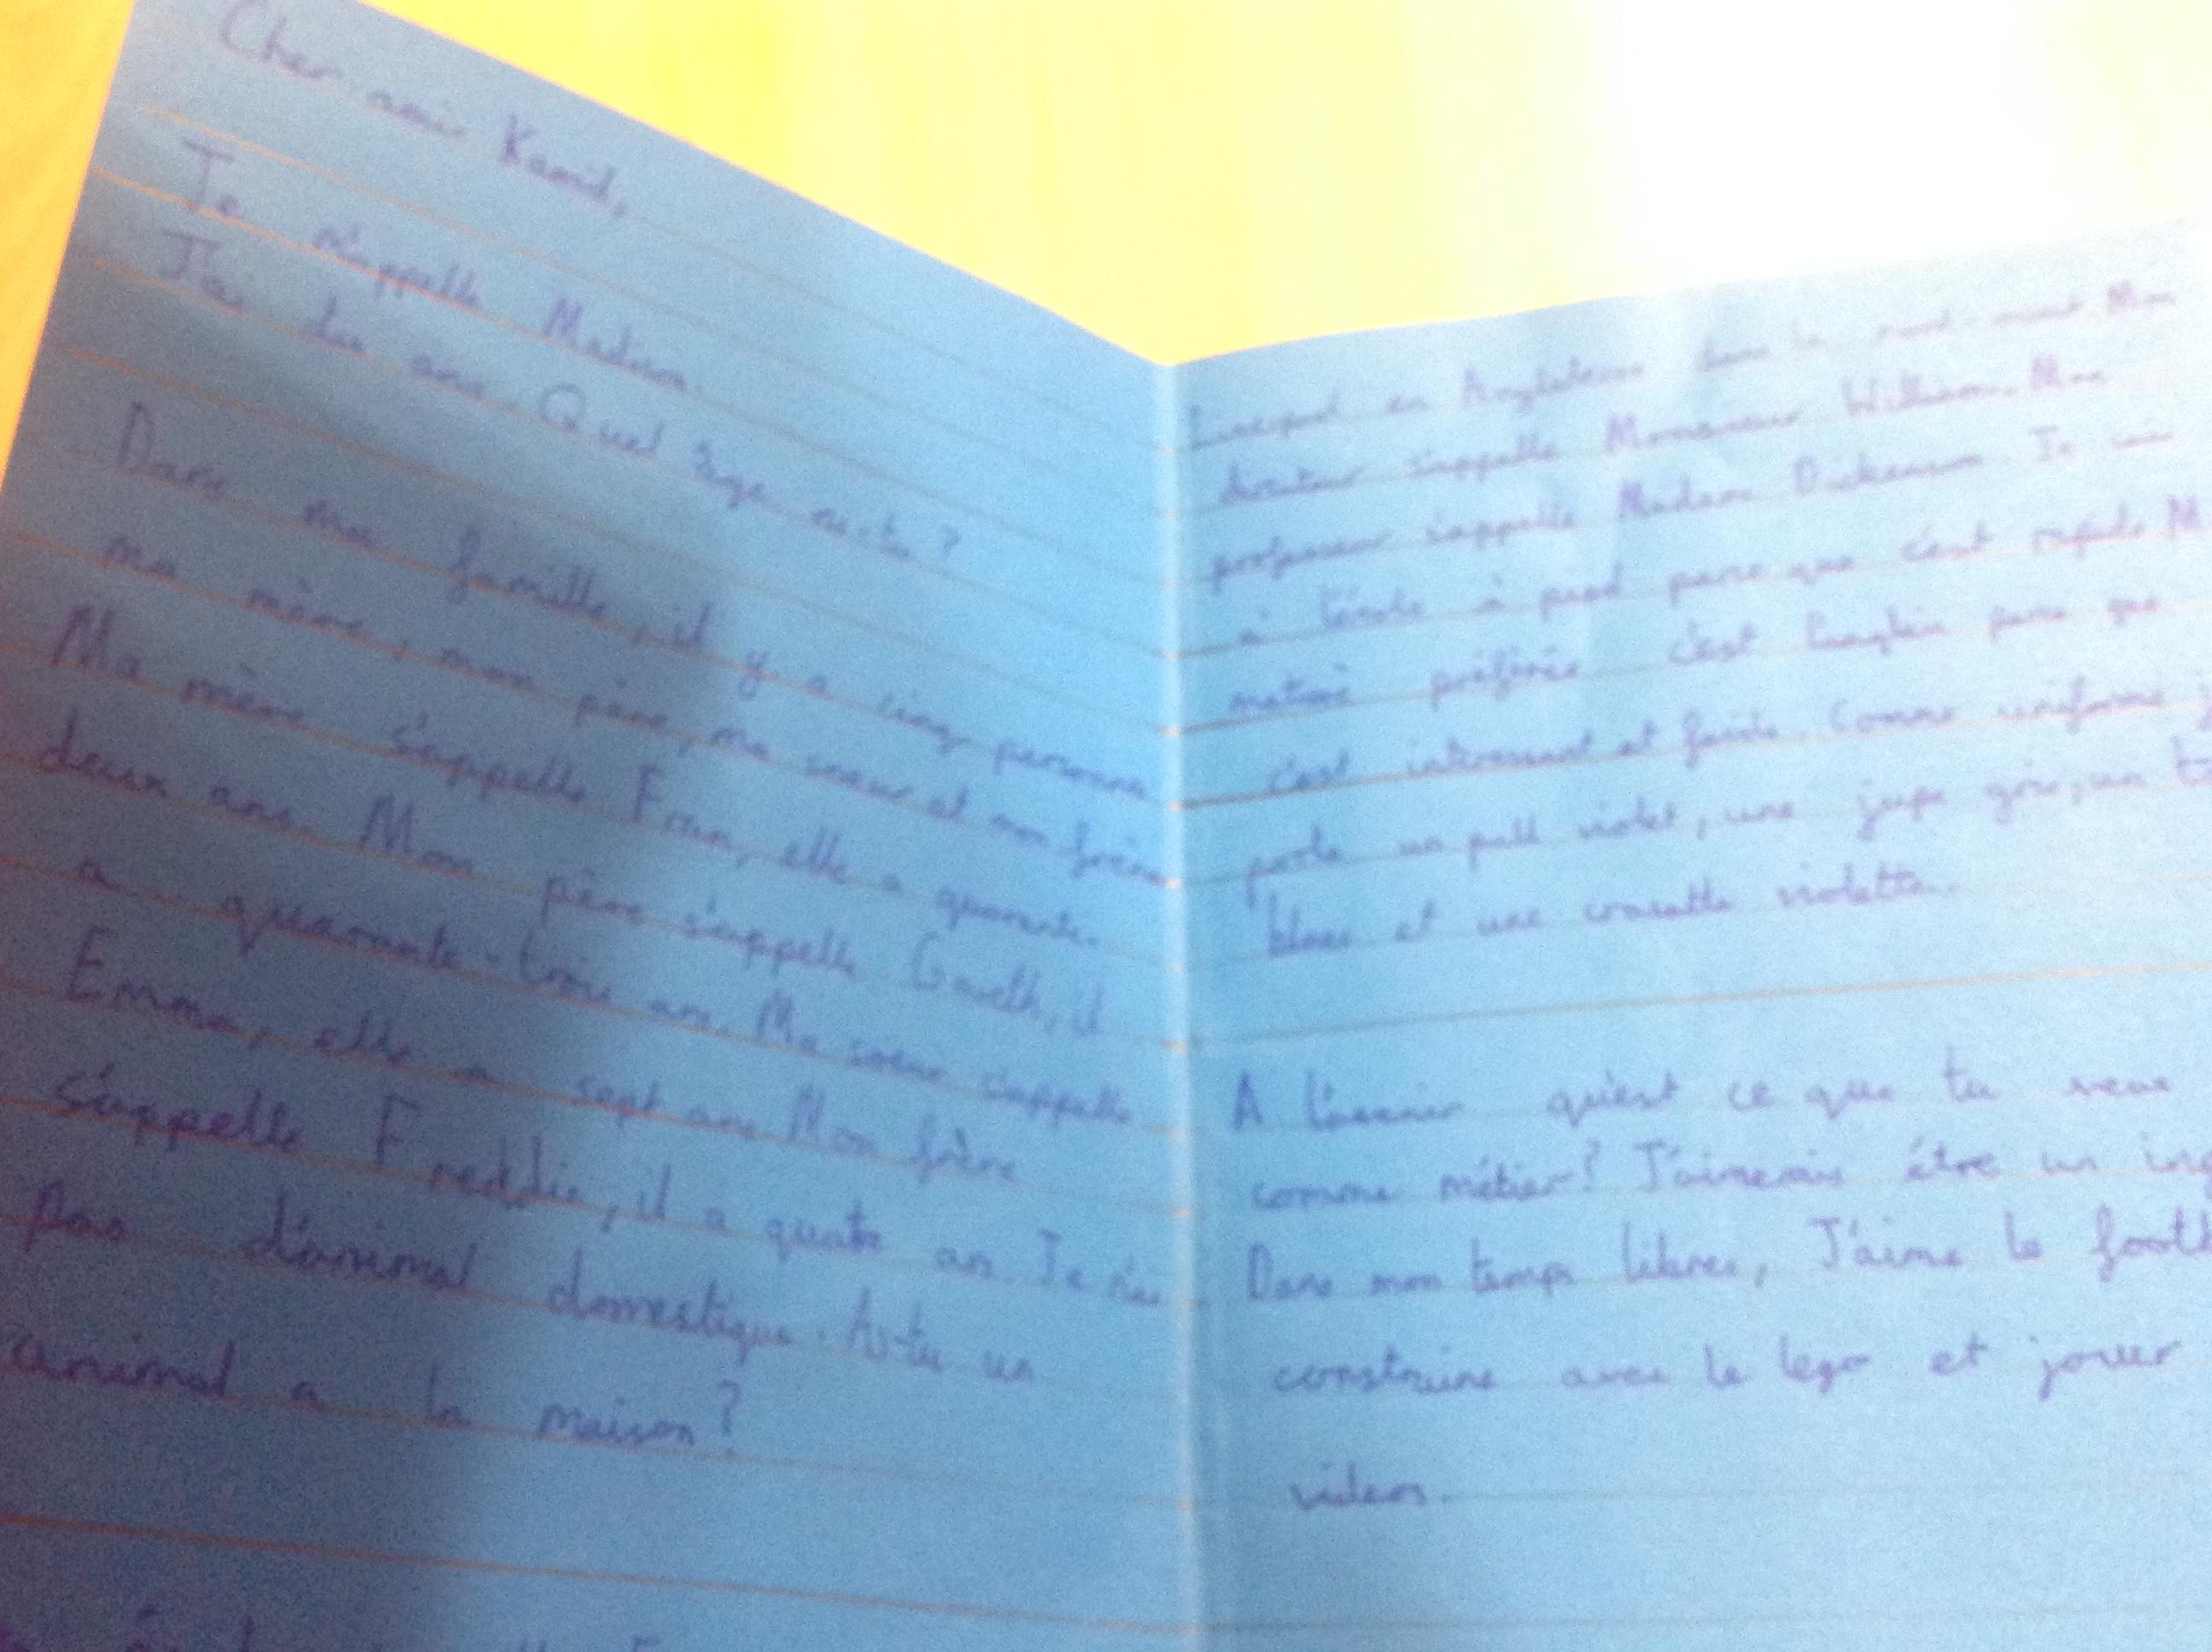 Cher ami Kamil,
Je m'appelle Madison.
J'ai dix ans. Quel âge as-tu?
Dans ma famille, il y a cinq personne
ma mère, mon père, ma soeur et mon frère
Ma mère s'appelle Fran, elle a quarante-
deux ans. Mon père s'appelle Gareth, il
a quarante-trois ans. Ma soeur s'appelle
Emma, elle a sept ans. Mon frère
s'appelle Freddie, il a quatre an. Je n'ai
pas d'animal domestique. As-tu un
animal a la maison?
Liverpool en Angleterre dans le nord-ouest. Mon
directeur s'appelle Monsieur William. Mon
professeur s'appelle Madam Dickenson. Je vais
à l'école à pied parce que c'est rapide. M
matière préférée c'est l'anglais parce que
c'est interessant et facile. Comme uniforme
porte un pull violet, une jupe gris, un t
blanc et une cravatte violette.
A l'avenir qu'est ce que tu veux
comme métier? J'aimerais être un ing
Dans mon temps libres, J'aime le footb
construire avec le lego et jouer
videos.